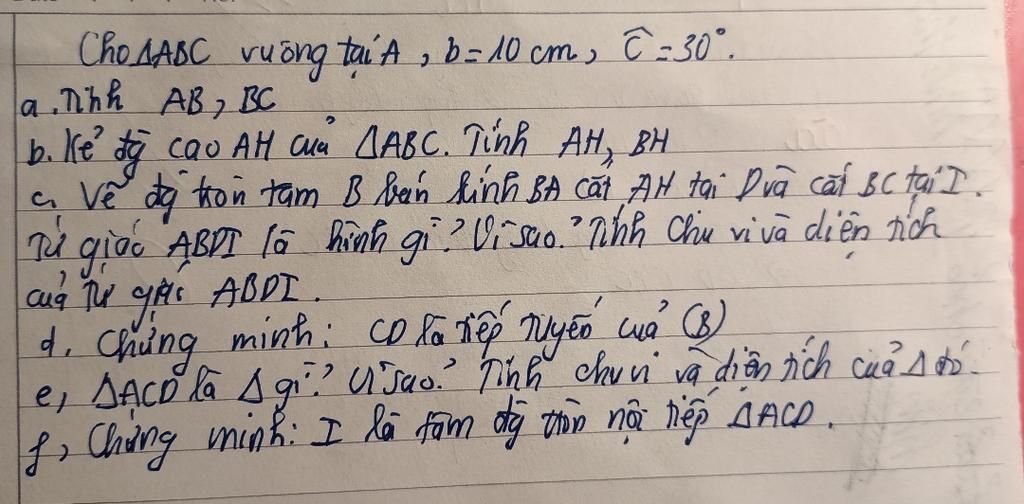 Cho ΔABC vuông tại A, b = 10 cm, Ĉ = 30°.
a. Tính AB, BC
b. Kẻ đg cao AH của ΔABC. Tính AH, BH
c, Vẽ đg tròn tâm B bán kính BA cắt AH tại D và cắt BC tại I.
Tứ giác ABDI là hình gì? Vì sao? Tính chu vi và diện tích
của tứ giác ABDI.
d, Chứng minh: CD là tiếp tuyến của (B)
e, ΔACD là Δ gì? Vì sao? Tính chu vi và diện tích của Δ đó.
f, Chứng minh: I là tâm đg tròn nội tiếp ΔACD.